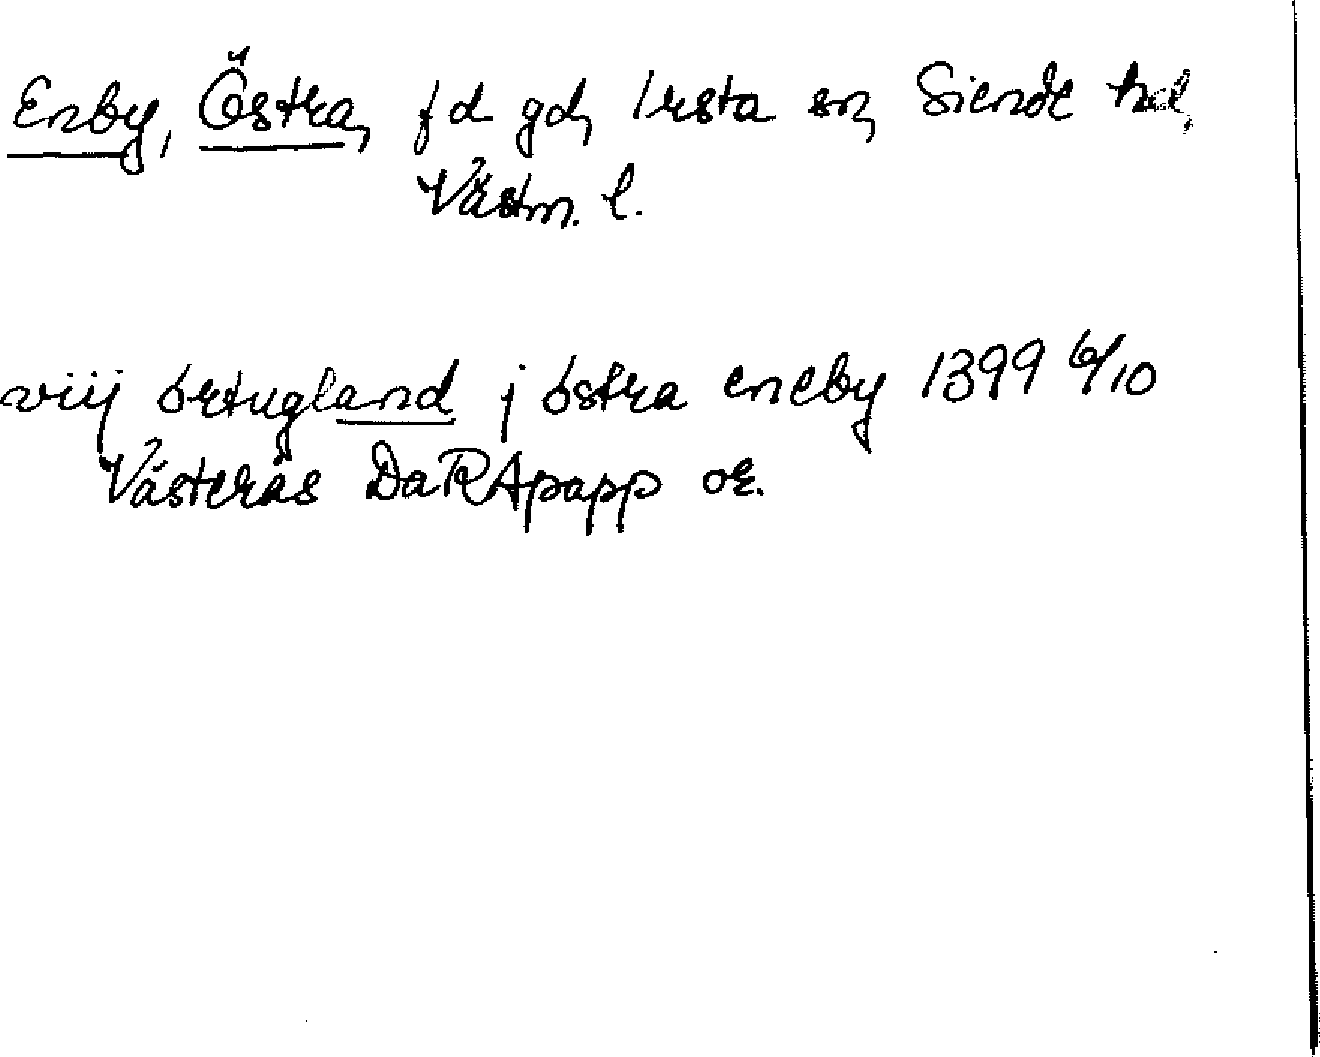 Enby, Östra, fd gd, Irsta sn, Siende hd,
Västm. l.
viij ortugland j ostra eneby 1399 6/10
Västerås DaRApapp or.